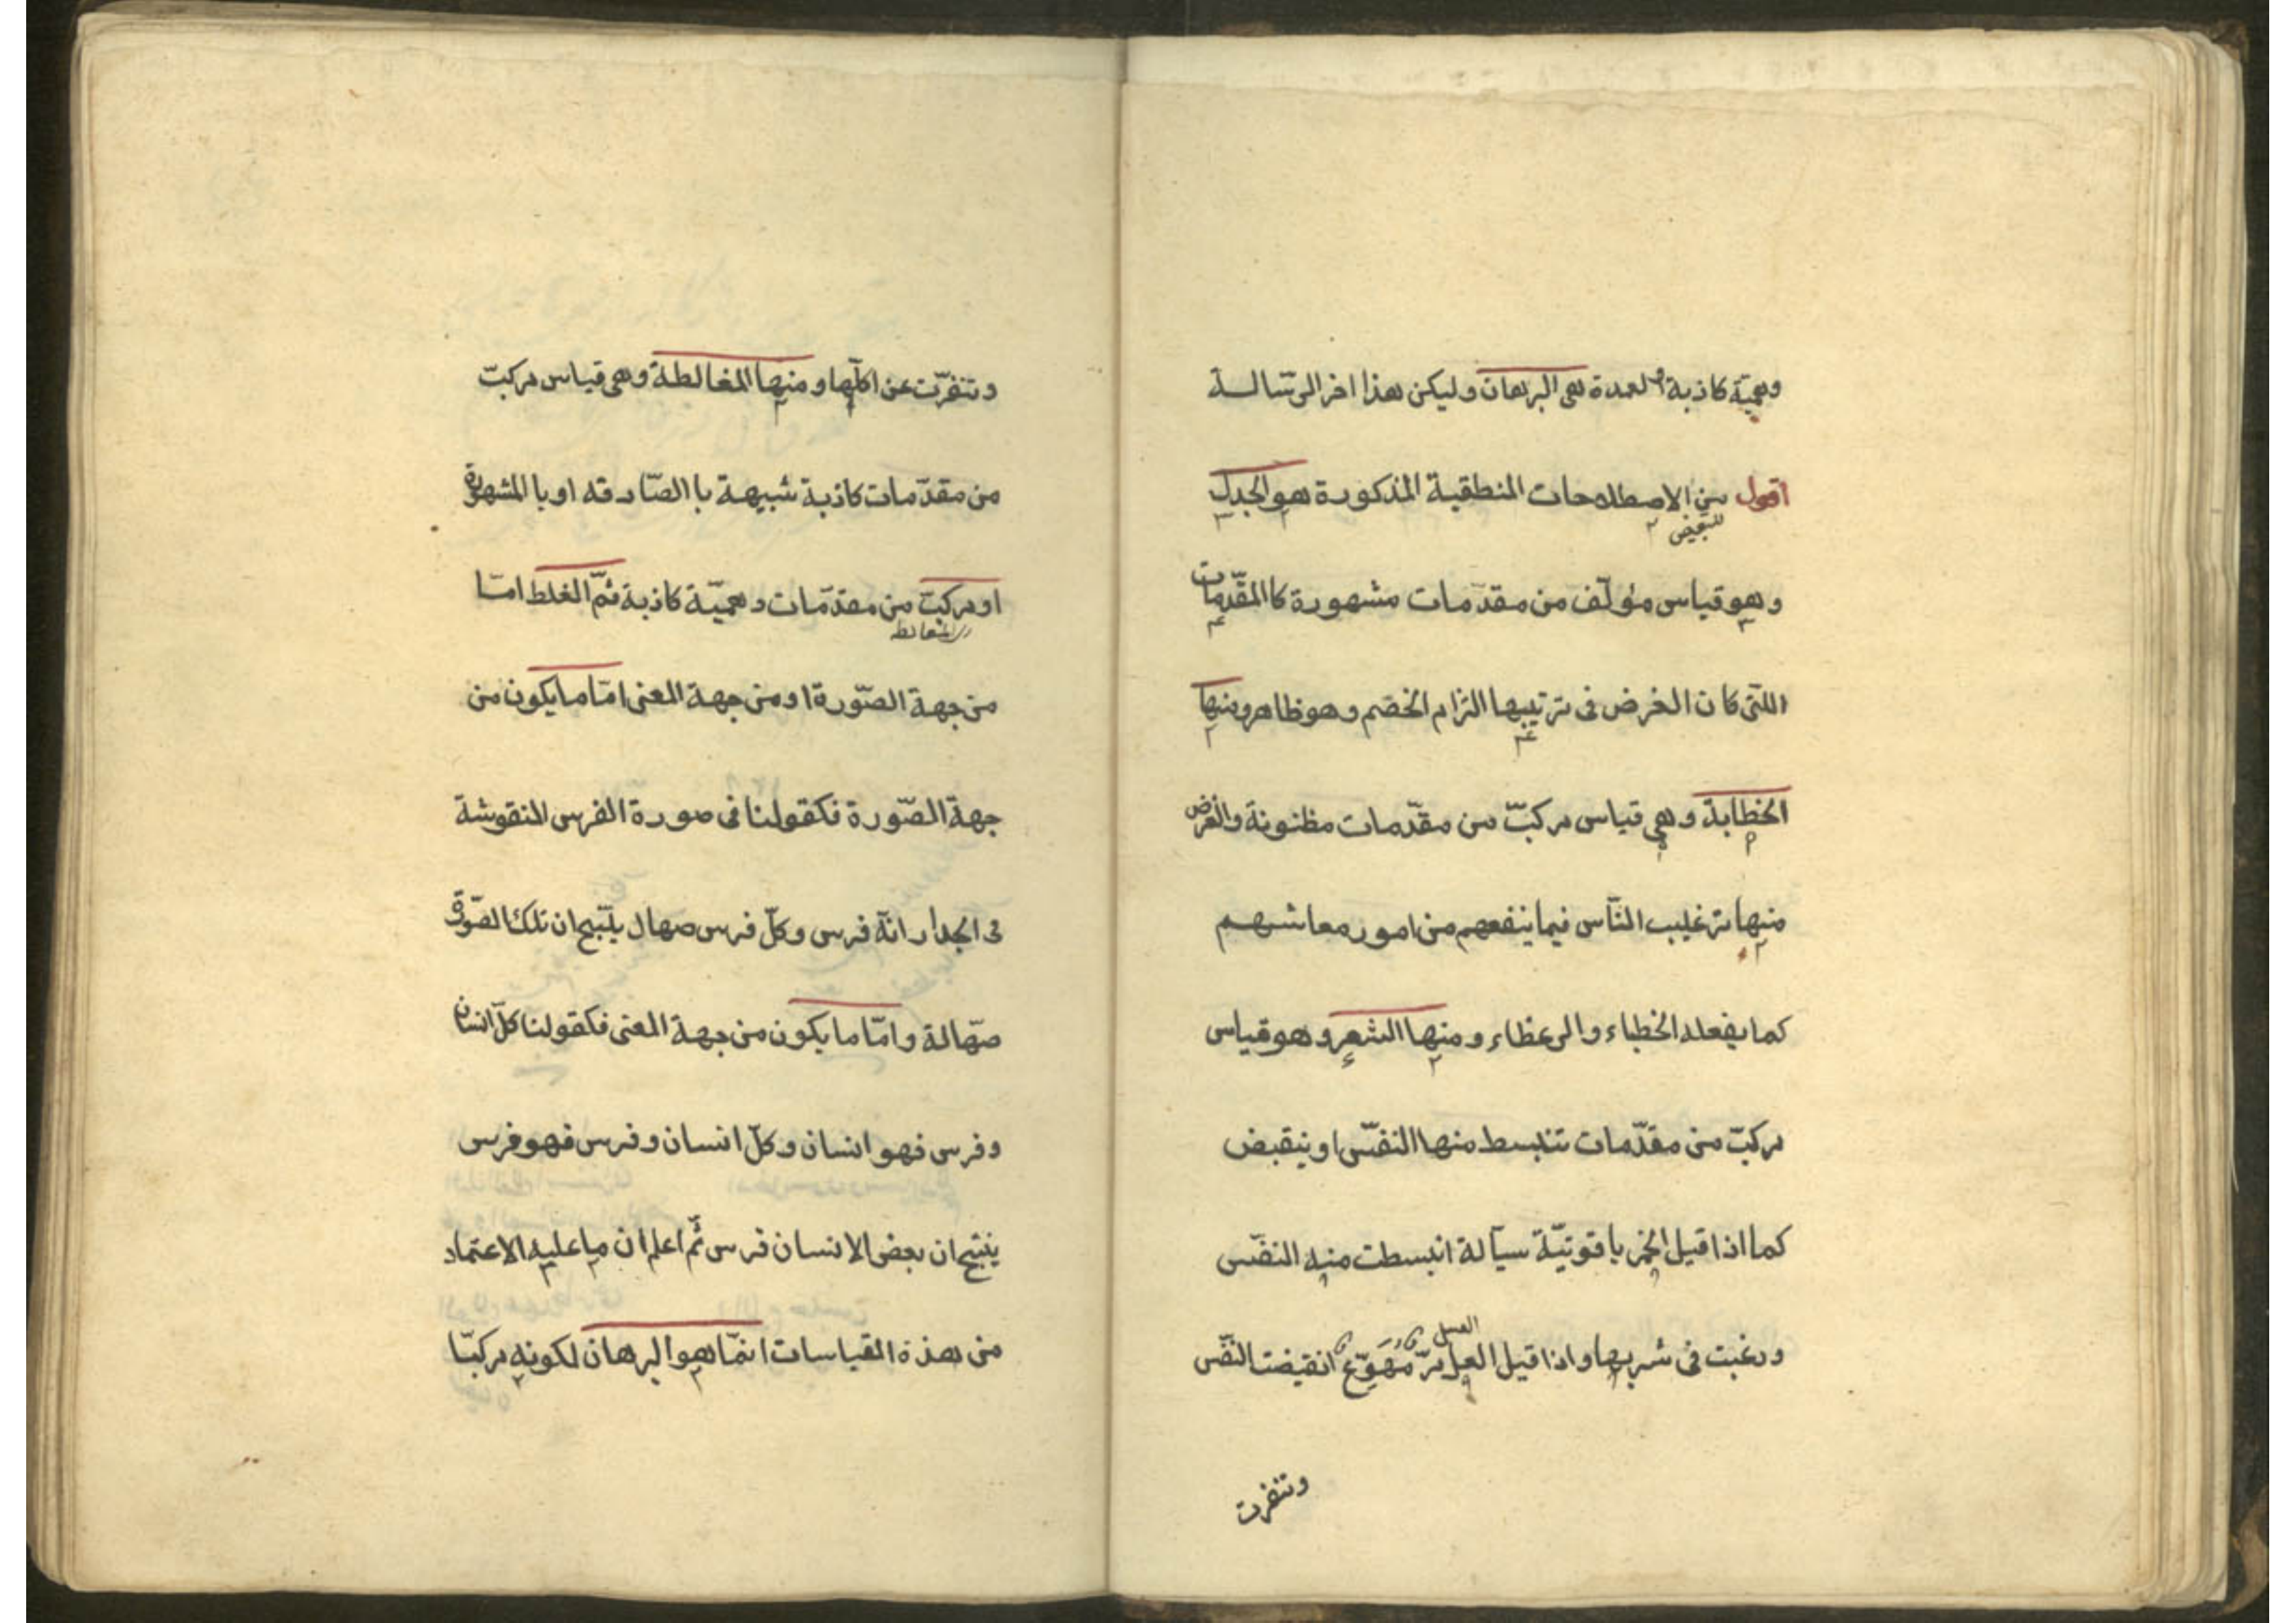 وهميّة كاذبة والعمدة هى البرهان وليكن هذا اخر الرسالة
اقول من الاصطلاحات المنطقية المذكورة هو الجدل
للتبعيض
وهو قياس مؤلّف من مقدّمات مشهورة كاالمقدّمات
اللتى كان الغرض فى ترتيبها التزام الخصم وهو ظاهر ومنها
الخطابة وهى قياس مركبّ من مقدّمات مظنونة والغرض
منها ترغليب النّاس فيما ينفعهم من امور معاشهم
كما يفعله الخطباء والوعظاء ومنها الشعر وهو قياس
مركبّ من مقدّمات تنبسط منها النفّس او ينقبض
كما اذا قيل الخمر ياقوتيّة سيّالة انبسطت منه النفّس
العسل
ورغبت فى شربها واذا قيل العسل مرّ مهوّع انقبضت النفّس
وتنفرت
وتنفرّت عن اكلها ومنها المغالطة وهى قياس مركبّ
من مقدّمات كاذبة شبيهة باالصّادقه او باالمشهورة
او مركبّ من مقدّمات وهميّة كاذبة ثمّ الغلط امّا
من جهة الصّورة او من جهة المعنى امّا ما يكون من
جهة الصّورة فكقولنا فى صورة الفرس المنقوشة
فى الجدار انّه فرس وكلّ فرس صهال ينتج ان تلك الصّورة
صهّالة وامّا ما يكون من جهة المعنى فكقولنا كلّ انسان
وفرس فهو انسان وكلّ انسان وفرس فهو فرس
ينتج ان بعض الانسان فرس ثمّ اعلم ان ما عليه الاعتماد
من هذه القياسات انمّا هو البرهان لكونه مركبّا